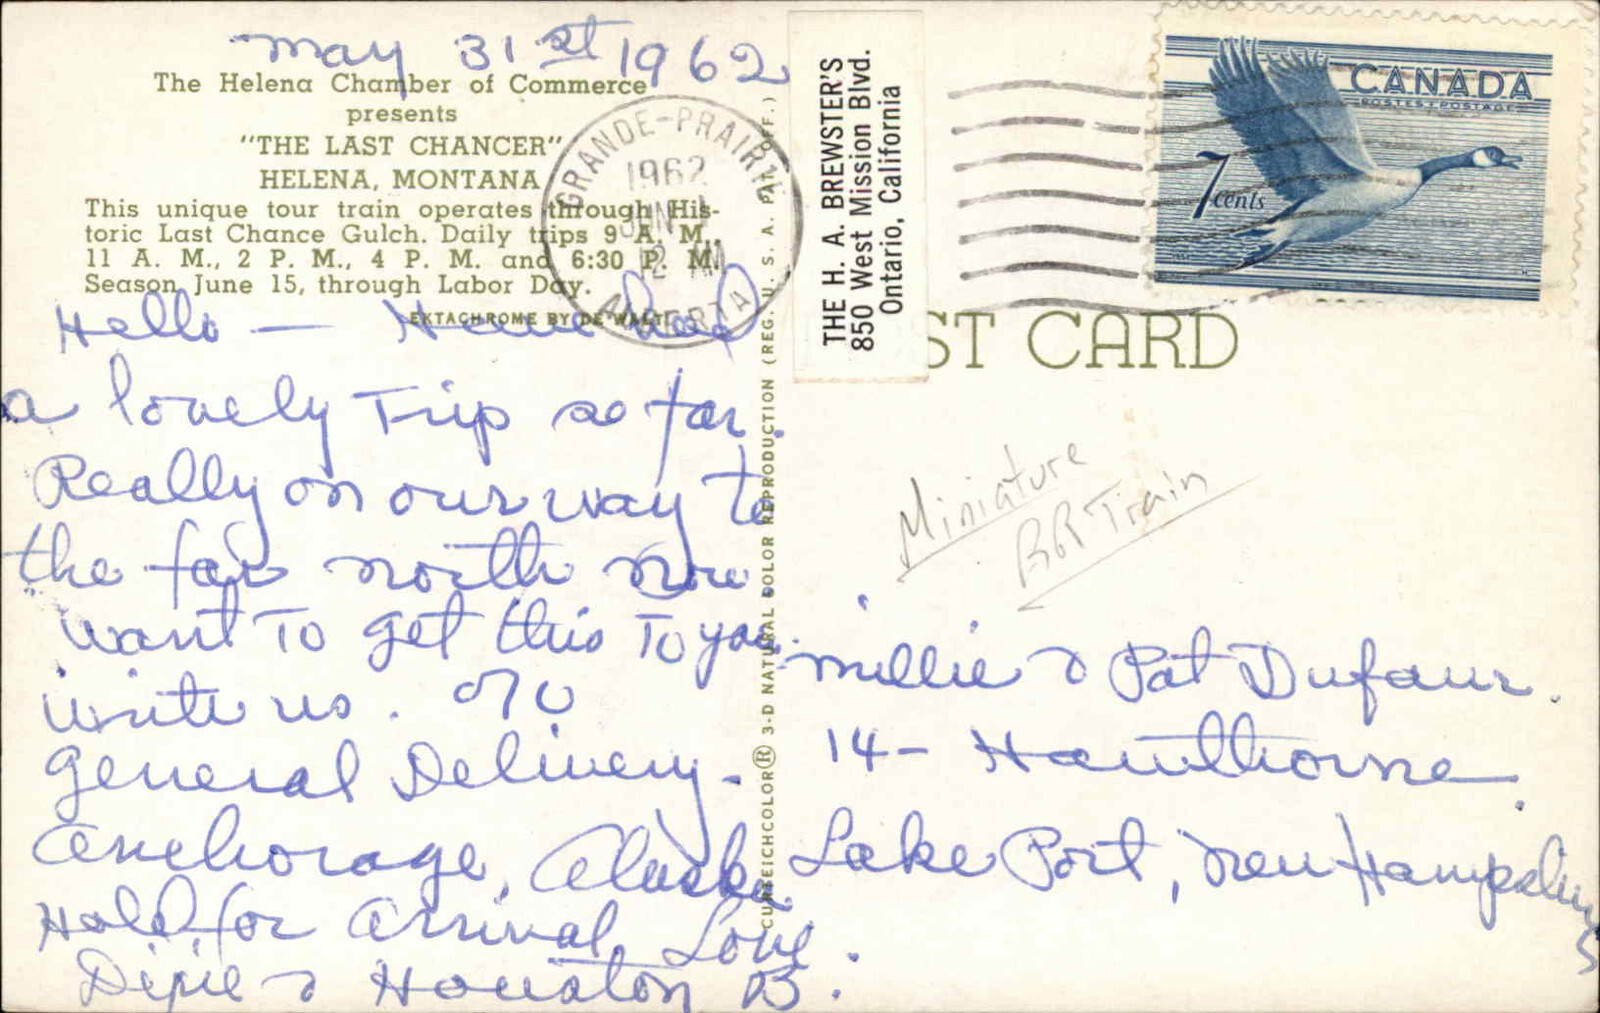 may 31st 1962
The Helena Chamber of Commerce
presents
"THE LAST CHANCER"
HELENA, MONTANA
This unique tour train operates through His-
toric Last Chance Gulch. Daily trips 9 A. M.,
11 A. M., 2 P. M., 4 P. M. and 6:30 P. M.
Season June 15, through Labor Day.
EKTACHROME BY DE WALT
Hello — Have had
a lovely Trip so far.
Really on our way to
the far north now
want To get this To you.
write us. %
General Delivery -
Anchorage, Alaska
Hold for Arrival. Love.
Dixie & Houston B.
GRANDE-PRAIRIE
1962
JUN
ALBERTA
CURTEICHCOLOR® 3-D NATURAL COLOR REPRODUCTION (REG. U. S. A. PAT. OFF.)
THE H. A. BREWSTER'S
850 West Mission Blvd.
Ontario, California
CANADA
POSTES POSTAGE
7 cents
ST CARD
Miniature
RR Train
Millie & Pat Dufaur.
14 - Hawthorne
Lake Port, New Hampshire